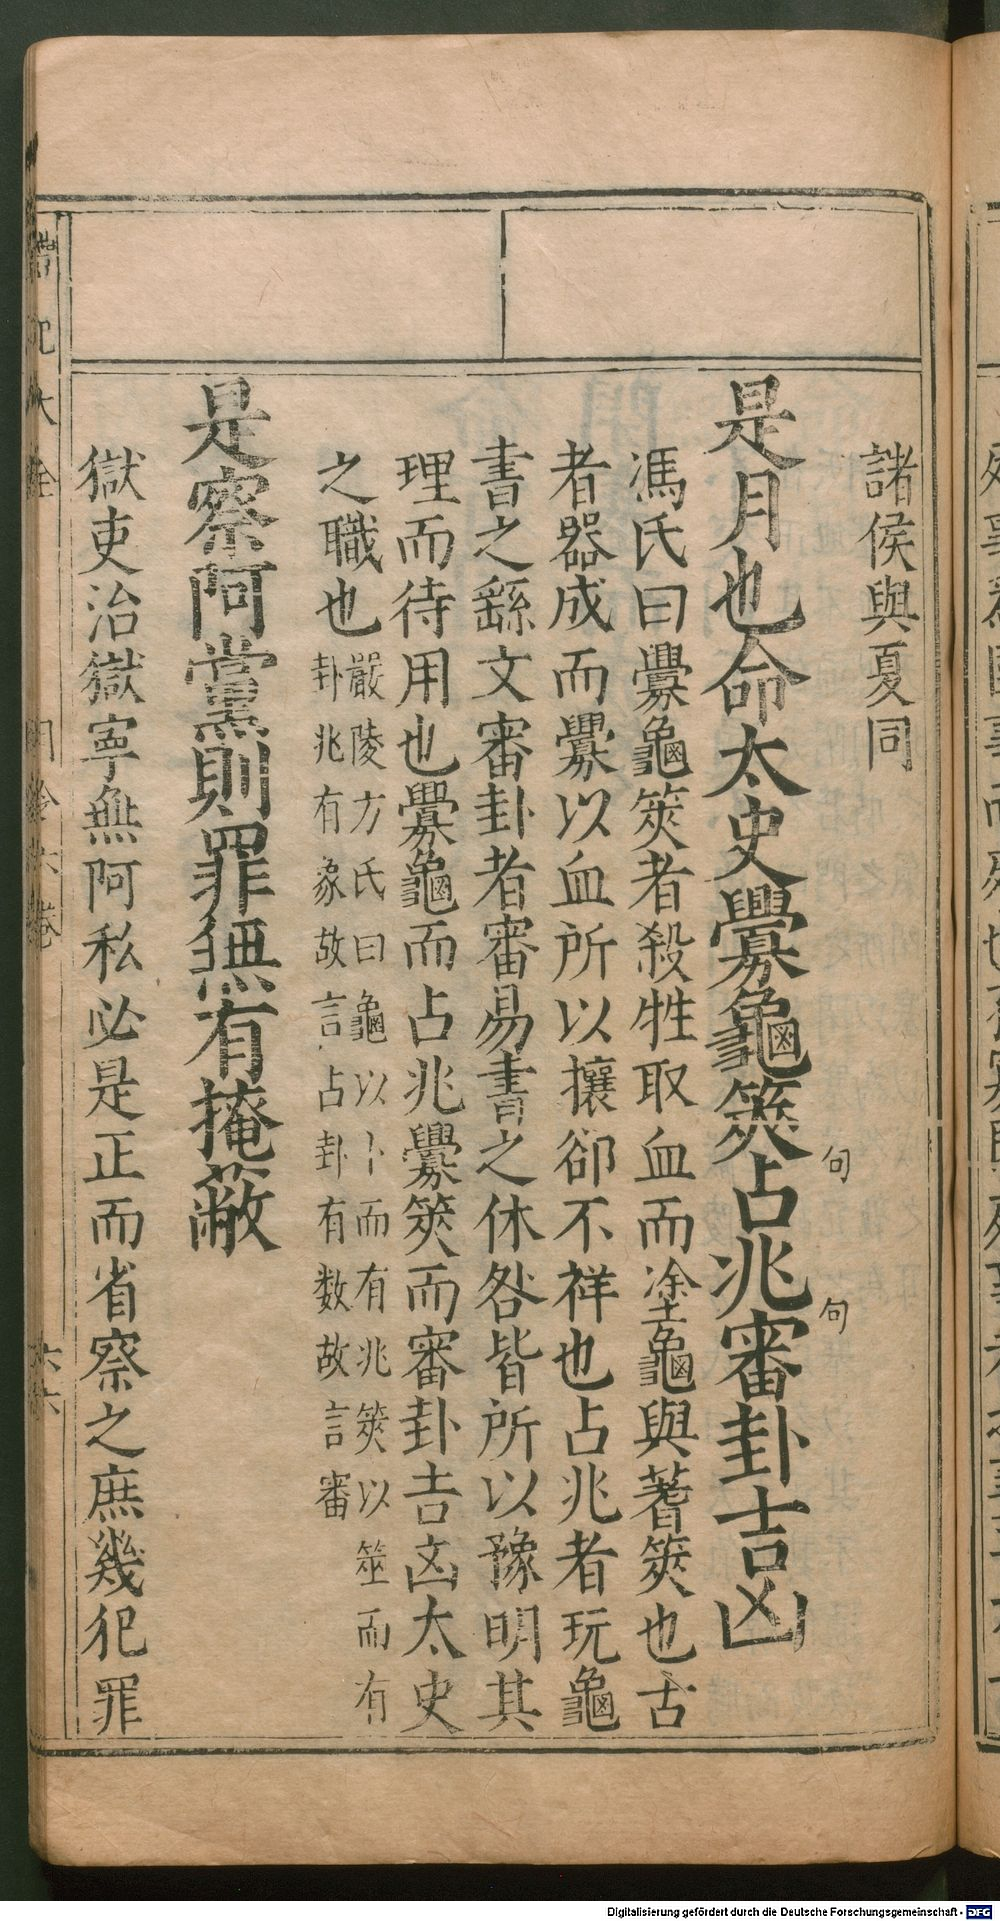 諸侯與夏同
是月也命太史釁龜筴句占兆句審卦吉凶
馮氏曰釁龜筴者殺牲取血而塗龜與蓍筴也古
者器成而釁以血所以攘郤不祥也占兆者玩龜
書之繇文審卦者審易書之休咎皆所以豫明其
理而待用也釁龜而占兆釁筴而審卦吉凶太史
之職也嚴陵方氏曰龜以卜而有兆筴以筮而有
卦兆有象故言占卦有数故言審
是察阿黨則罪無有掩蔽
獄吏治獄寧無阿私必是正而省察之庶幾犯罪
大全
月令六卷
六六
Digitalisierung gefördert durch die Deutsche Forschungsgemeinschaft - DFG